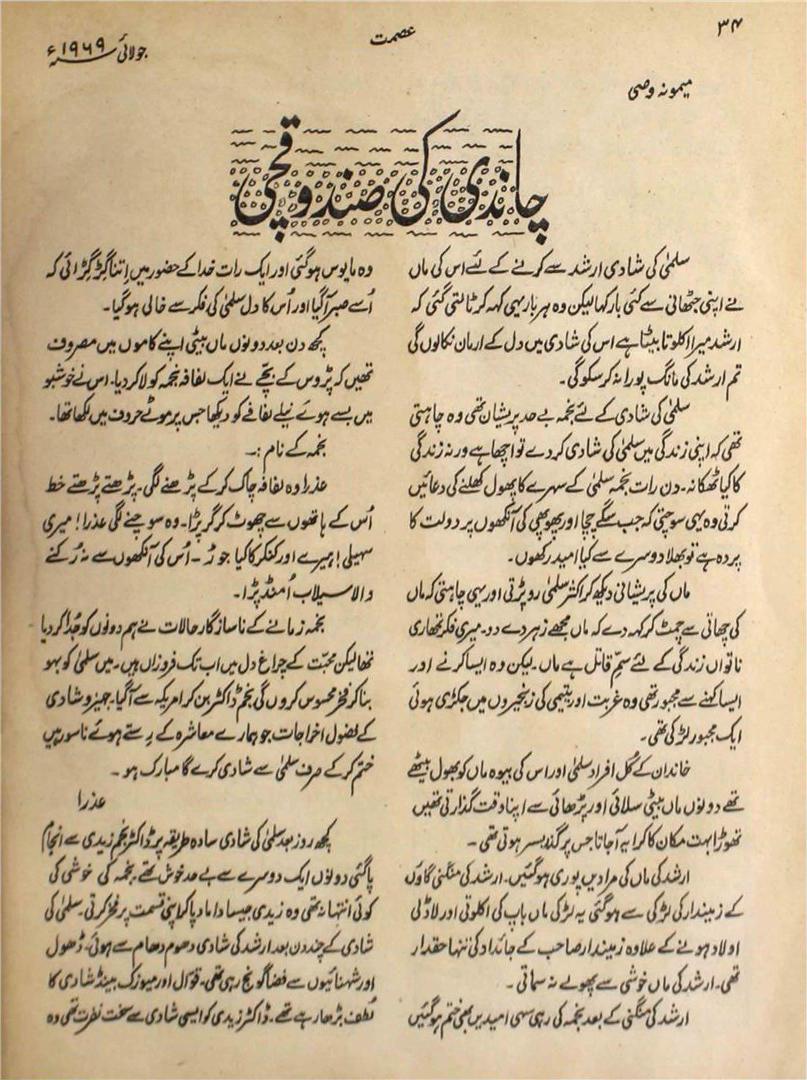 ۳۴
عصمت
جولائی ۱۹۶۹ء
میمونہ وصی
چاندی کی صندوقچی
سلمیٰ کی شادی ارشد سے کرنے کے لئے اس کی ماں
نے اپنی جٹھانی سے کئی بار کہا لیکن وہ ہر بار یہی کہہ کر ٹالتی گئی کہ
ارشد میرا اکلوتا بیٹا ہے اس کی شادی میں دل کے ارمان نکالوں گی
تم ارشد کی مانگ پورا نہ کر سکو گی۔
سلمیٰ کی شادی کے لئے نجمہ بے حد پریشان تھی وہ چاہتی
تھی کہ اپنی زندگی میں سلمیٰ کی شادی کر دے تو اچھا ہے ورنہ زندگی
کا کیا ٹھکانہ۔ دن رات نجمہ سلمیٰ کے سہرے کا پھول کھلنے کی دعائیں
کرتی وہ یہی سوچتی کہ جب سگے چچا اور پھوپھی کی آنکھوں پر دولت کا
پردہ ہے تو بھلا دوسرے سے کیا امید رکھوں۔
ماں کی پریشانی دیکھ کر اکثر سلمیٰ رو پڑتی اور یہی چاہتی کہ ماں
کی چھاتی سے چمٹ کر کہہ دے کہ ماں مجھے زہر دے دو۔ میری فکر تمھاری
ناتواں زندگی کے لئے سمِّ قاتل ہے ماں۔ لیکن وہ ایسا کرنے اور
ایسا کہنے سے مجبور تھی وہ غربت اور یتیمی کی زنجیروں میں جکڑی ہوئی
ایک مجبور لڑکی تھی۔
خاندان کے کُل افراد سلمیٰ اور اس کی بیوہ ماں کو بھول بیٹھے
تھے دونوں ماں بیٹی سلائی اور پڑھائی سے اپنا وقت گذارتی تھیں
تھوڑا بہت مکان کا کرایہ آ جاتا جس پر گذر بسر ہوتی تھی۔
ارشد کی ماں کی مرادیں پوری ہو گئیں۔ ارشد کی منگنی گاؤں
کے زمیندار کی لڑکی سے ہو گئی یہ لڑکی ماں باپ کی اکلوتی اور لاڈلی
اولاد ہونے کے علاوہ زمیندار صاحب کے جائداد کی تنہا حقدار
تھی۔ ارشد کی ماں خوشی سے پھولے نہ سماتی۔
ارشد کی منگنی کے بعد نجمہ کی رہی سہی امیدیں بھی ختم ہو گئیں
وہ مایوس ہو گئی اور ایک رات خدا کے حضور میں اِتنا گِڑ گِڑائی کہ
اُسے صبر آ گیا اور اُس کا دل سلمیٰ کی فکر سے خالی ہو گیا۔
کچھ دن بعد دونوں ماں بیٹی اپنے کاموں میں مصروف
تھیں کہ پڑوس کے بچّے نے ایک لفافہ نجمہ کو لا کر دیا۔ اس نے خوشبو
میں بسے ہوئے نیلے لفافے کو دیکھا جس پر موٹے حروف میں لکھا تھا۔
نجمہ کے نام :۔
عذرا وہ لفافہ چاک کر کے پڑھنے لگی۔ پڑھتے پڑھتے خط
اُس کے ہاتھوں سے چھوٹ کر گر پڑا۔ وہ سوچنے لگی عذرا! میری
سہیلی! ہیرے اور کنکر کا کیا جوڑ۔ اُس کی آنکھوں سے نہ رُکنے
والا سیلاب اُمنڈ پڑا۔
نجمہ زمانے کے ناسازگار حالات نے ہم دونوں کو جُدا کر دیا
تھا لیکن محبّت کے چراغ دل میں اب تک فروزاں ہیں۔ میں سلمیٰ کو بہو
بنا کر فخر محسوس کروں گی نجم ڈاکٹر بن کر امریکہ سے آ گیا۔ جہیز و شادی
کے فضول اخراجات جو ہمارے معاشرہ کے رِستے ہوئے ناسور ہیں
ختم کر کے صرف سلمیٰ سے شادی کرے گا مبارک ہو۔
عذرا
کچھ روز بعد سلمیٰ کی شادی سادہ طریقہ پر ڈاکٹر نجم زیدی سے انجام
پا گئی دونوں ایک دوسرے سے بے حد خوش تھے۔ نجمہ کی خوشی کی
کوئی انتہا نہ تھی وہ زیدی جیسا داماد پا کر اپنی قسمت پر فخر کرتی۔ سلمیٰ کی
شادی کے چند دن بعد ارشد کی شادی دھوم دھام سے ہوئی۔ ڈھول
اور شہنائیوں سے فضا گونج رہی تھی۔ قوّال اور میوزک بینڈ شادی کا
لُطف بڑھا رہے تھے۔ ڈاکٹر زیدی کو ایسی شادی سے سخت نفرت تھی وہ